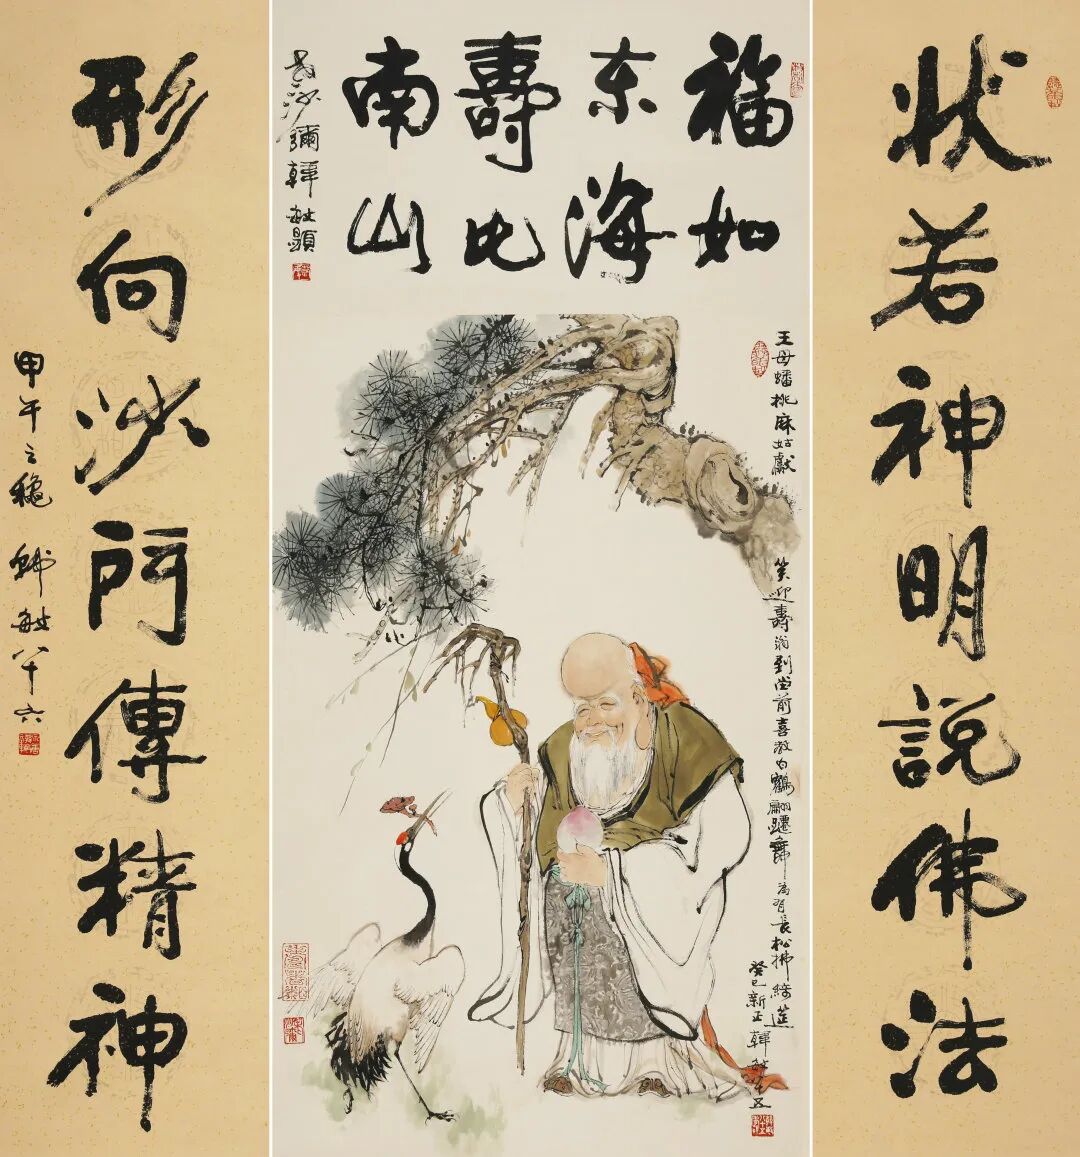 状若神明說佛法
福如
东海
壽比
南山
老沙彌韓敏題
王母蟠桃麻姑獻
笑迎壽翁到堂前喜教白鶴翩躚舞為有長松拂綺筵
癸巳新正韓敏
形向沙门傳精神
甲午之穐
韩敏八十六